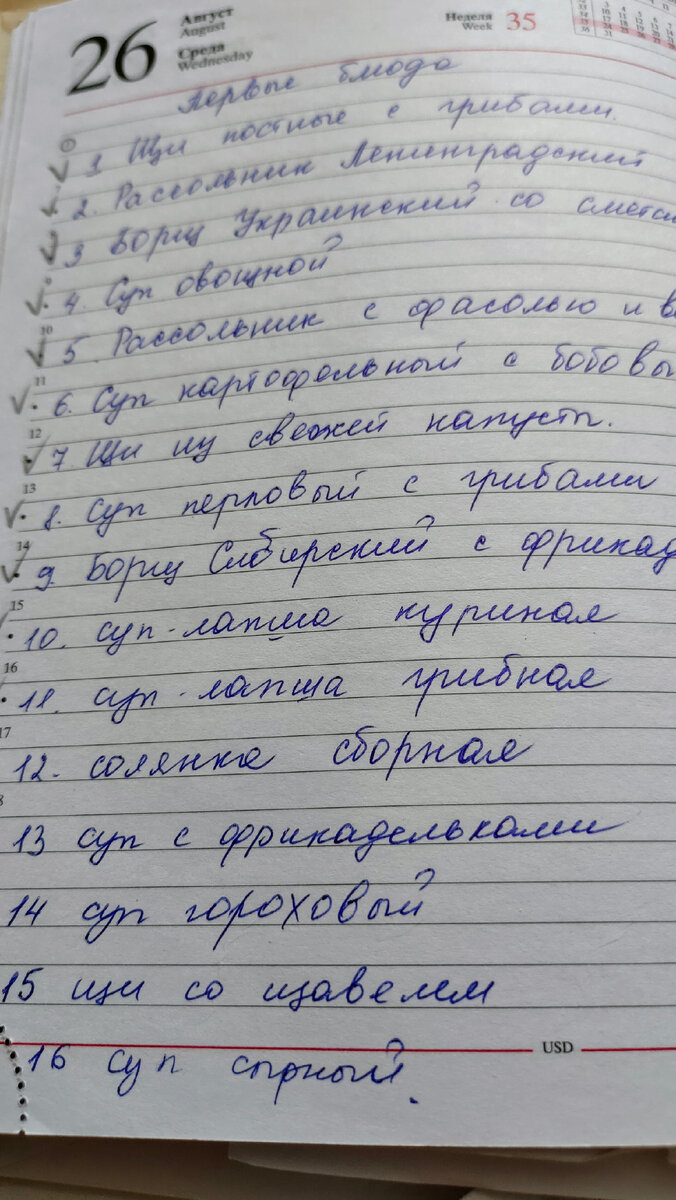 26 Август Неделя 35
August Week
Среда
Wednesday
Первые блюда
1 Щи постные с грибами.
2. Рассольник Ленинградский
3 Борщ Украинский со сметан
4. Суп овощной
10
5. Рассольник с фасолью и
11
6. Суп картофельный с бобовы
12
7. Щи из свежей капусты.
13
8. Суп перловый с грибами
14
9. Борщ Сибирский с фрикад
15
10. суп-лапша куриная
16
11. суп-лапша грибная
17
12. солянка сборная
13 суп с фрикадельками
14 суп гороховый
15 щи со щавелем
USD
16 суп сырный.